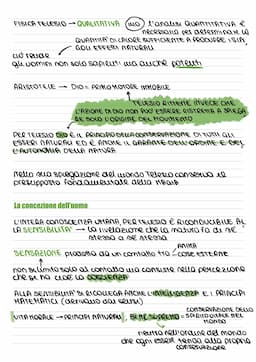 FISICA TELESIO → QUALITATIVA MA L'ANALISI QUANTITATIVA È
NECESSARIA PER DETERMINARE LA
QUANTITÀ DI CALORE SUFFICIENTE A PRODURRE
GLI EFFETTI NATURALI
ciò rende
gli uomini non solo sapienti ma anche potenti
ARISTOTELE → DIO = PRIMO MOTORE IMMOBILE
TELESIO RITIENE INVECE CHE
L'AZIONE DI DIO NON PUÒ ESSERE RISTRETTA A SPIEGA
RE SOLO L'ORIGINE DEL MOVIMENTO
PER TELESIO DIO È IL PRINCIPIO DELLA CONSERVAZIONE DI TUTTI GLI
ESSERI NATURALI ED È ANCHE IL GARANTE DELL'ORDINE E DEL
L'AUTONOMIA DELLA NATURA
nella sua spiegazione del mondo Telesio conserva il
presupposto fondamentale della magia
La concezione dell'uomo
L'INTERA CONOSCENZA UMANA, PER TELESIO È RICONDUCIBILE AL
LA SENSIBILITÀ → LA RIVELAZIONE CHE LA NATURA FA DI SE
STESSA A SE STESSA
SENSAZIONE prodotta da un contatto tra ANIMA
COSE ESTERNE
non si limita solo al contatto ma consiste nella percezione
che si ha cioè la COSCIENZA
ALLA SENSIBILITÀ SI RICOLLEGA ANCHE L'INTELLIGENZA E I PRINCIPI
MATEMATICI (derivano dai sensi)
VITA MORALE → PRINCIPI NATURALI, BENE SUPREMO = CONSERVAZIONE DELLO
SPIRITO VITALE NEL
MONDO
rientra nell'ordine del mondo
che ogni essere tenda alla propria
conservazione